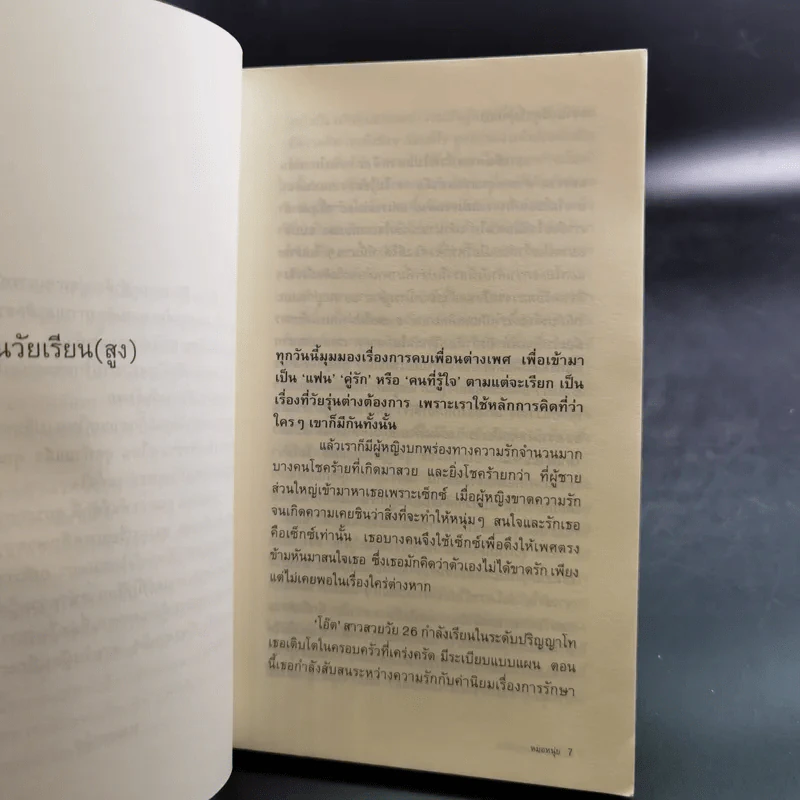 นวัยเรียน(สูง)
ทุกวันนี้มุมมองเรื่องการคบเพื่อนต่างเพศ เพื่อเข้ามา
เป็น 'แฟน' 'คู่รัก' หรือ 'คนที่รู้ใจ' ตามแต่จะเรียก เป็น
เรื่องที่วัยรุ่นต่างต้องการ เพราะเราใช้หลักการคิดที่ว่า
ใครๆ เขาก็มีกันทั้งนั้น
แล้วเราก็มีผู้หญิงบกพร่องทางความรักจำนวนมาก
บางคนโชคร้ายที่เกิดมาสวย และยิ่งโชคร้ายกว่า ที่ผู้ชาย
ส่วนใหญ่เข้ามาหาเธอเพราะเซ็กซ์ เมื่อผู้หญิงขาดความรัก
จนเกิดความเคยชินว่าสิ่งที่จะทำให้หนุ่มๆ สนใจและรักเธอ
คือเซ็กซ์เท่านั้น เธอบางคนจึงใช้เซ็กซ์เพื่อดึงให้เพศตรง
ข้ามหันมาสนใจเธอ ซึ่งเธอมักคิดว่าตัวเองไม่ได้ขาดรัก เพียง
แต่ไม่เคยพอในเรื่องใคร่ต่างหาก
'โอ๊ต' สาวสวยวัย 26 กำลังเรียนในระดับปริญญาโท
เธอเติบโตในครอบครัวที่เคร่งครัด มีระเบียบแบบแผน ตอน
นี้เธอกำลังสับสนระหว่างความรักกับค่านิยมเรื่องการรักษา
หมอหนุ่ย 7